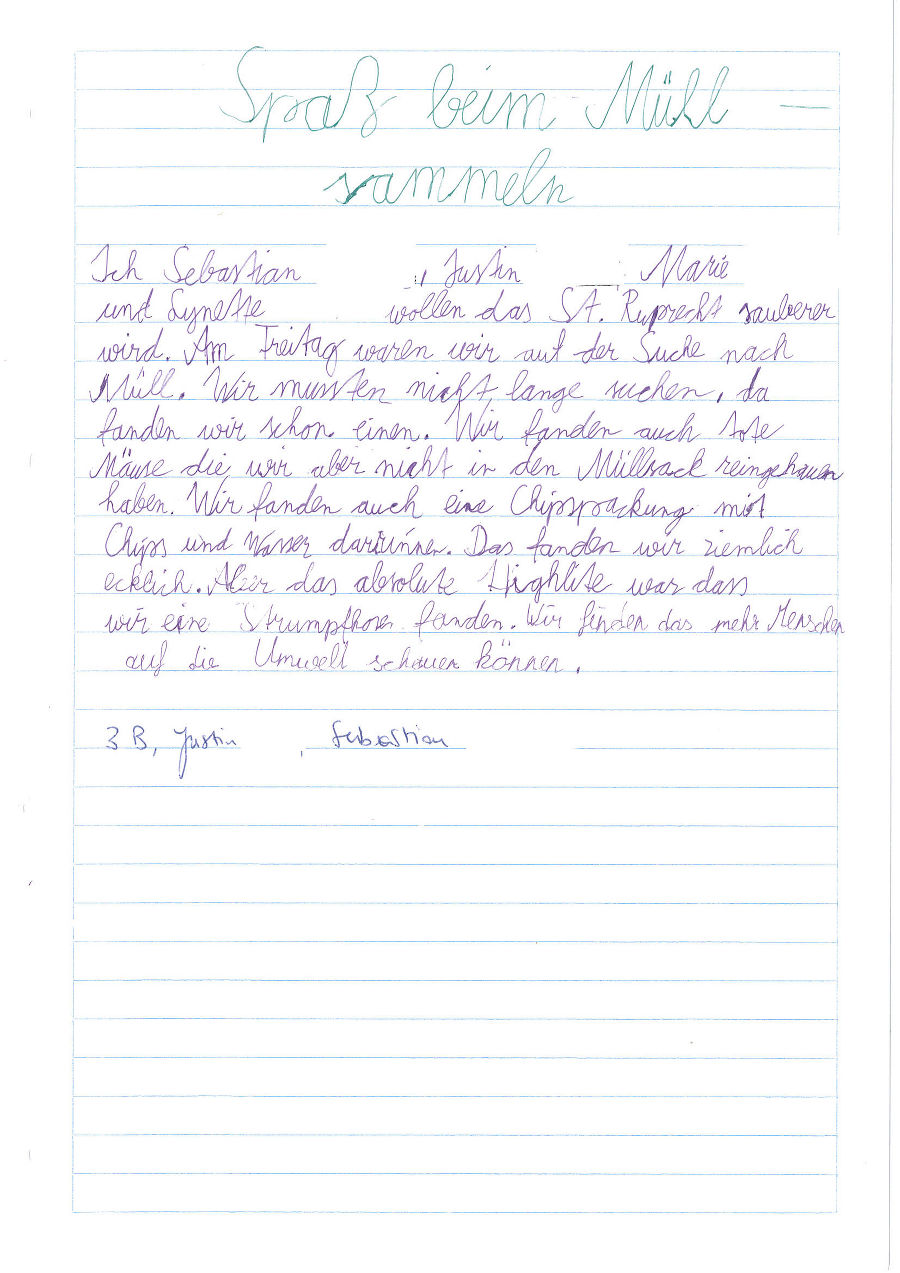 Spaß beim Mühl-
sammeln
Ich Sebastian , Justin Marie
und Lynette wollen das St. Ruprecht sauberer
wird. Am Freitag waren wir auf der Suche nach
Müll. Wir mussten nicht lange suchen, da
fanden wir schon einen. Wir fanden auch tote
Mäuse die wir aber nicht in den Müllsack reingehauen
haben. Wir fanden auch eine Chipspackung mit
Chips und Wasser darinnen. Das fanden wir ziemlich
ecklich. Aber das absolute Highlite war dass
wir eine Strumpfhose fanden. Wir finden das mehr Menschen
auf die Umwelt schauen können.
3B, Justin , Sebastian